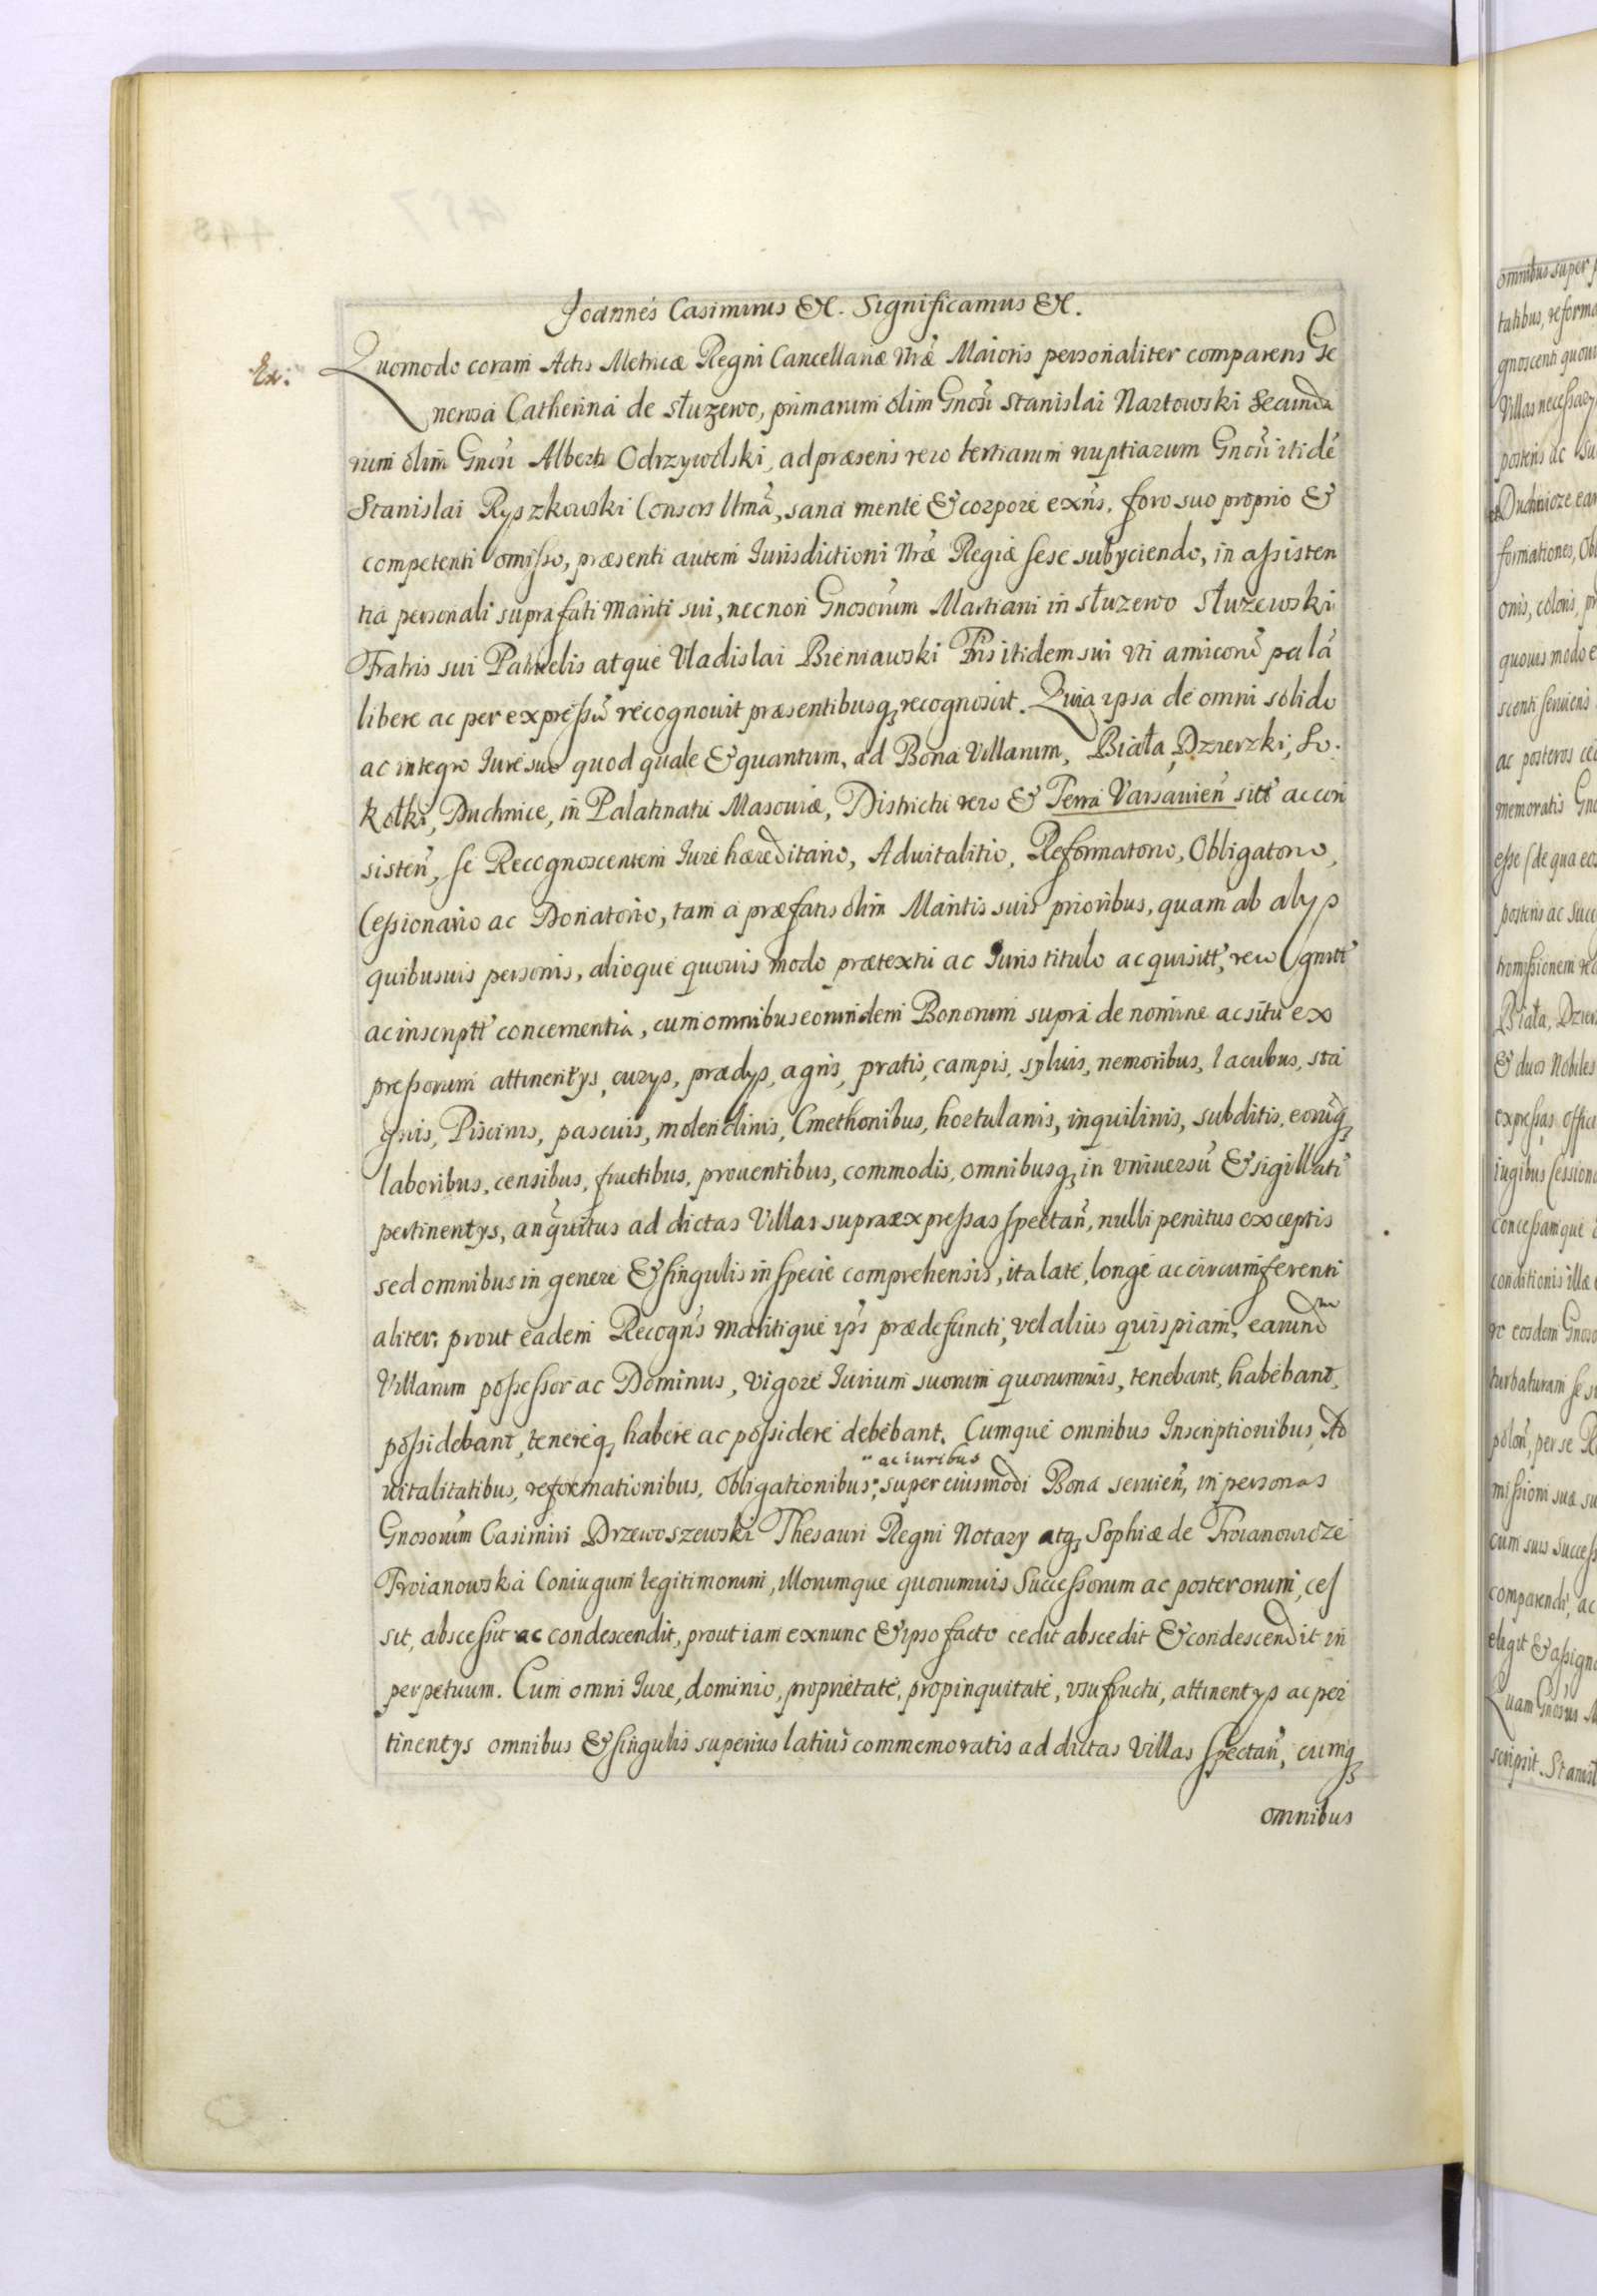 Joannes Casimirus &c. Significamus &c.
Ex:
Quomodo coram Actis Metricæ Regni Cancellariæ Nræ Maioris personaliter comparens Ge
nerosa Catherina de Słuzewo, primarum olim Gnosi Stanislai Nartowski Secunda
rum olim Gnosi Alberti Odrzywolski, ad præsens vero tertiarum nuptiarum Gnosi itidē
Stanislai Ryszkowski Consors ltmā, sana mente & corpore exn̄s, foro suo proprio &
competenti omisso, præsenti autem Iurisdictioni Nræ Regiæ sese subyciendo, in assisten
tia personali suprafati Mariti sui, necnon Gnosorum Martiani in Słuzewo Słuzewski
Fratris sui Patruelis atque Vladislai Bieniawski Fris itidem sui vti amicorū palā
libere ac per expressū recognouit præsentibusq; recognoscit. Quia ipsa de omni solido
ac integro Iure suo quod quale & quantum, ad Bona Villarum, Biała, Dzierzki, So.
kołki, Duchnice, in Palatinatu Masouiæ, Districtu vero & Terra Varsauien̄ sitt ac con
sisten̄, se Recognoscentem Iure hæreditario, Aduitalitio, Reformatorio, Obligatorio,
Cessionario ac Donatorio, tam a præfatis olim Maritis suis prioribus, quam ab alys
quibusuis personis, alioque quouis modo prætextu ac Iuris titulo acquisitt, recognitt
ac inscriptt concernentia, cum omnibus eorumdem Bonorum supra de nomine ac situ ex
pressorum attinentys, curys, prædys, agris, pratis, campis, syluis, nemoribus, lacubus, sta
gnis, Piscinis, pascuis, molendinis, Cmethonibus, hortulanis, inquilinis, subditis, eorūq;
laboribus, censibus, fructibus, prouentibus, commodis, omnibusq; in vniuersū & sigillatī
pertinentys, antiquitus ad dictas Villas supraexpressas spectan̄, nulli penitus exceptis
sed omnibus in genere & singulis in specie comprehensis, ita late, longe ac circumferenti
aliter, prout eadem Recogn̄s maritique ip̄s prædefuncti, vel alius quispiam, earundm
Villarum possessor ac Dominus, vigore Iurium suorum quorumuis, tenebant, habebant,
possidebant, tenereq; habere ac possidere debebant. Cumque omnibus Inscriptionibus, Ad
" ac iuribus
uitalitatibus, reformationibus, obligationibus", super eiusmodi Bona seruien̄, in personas
Gnosorum Casimiri Drzewoszewski Thesauri Regni Notary atq; Sophiæ de Troianowicze
Troianowska Coniugum legitimorum, illorumque quorumuis Successorum ac posterorum, ces
sit, abscessit ac condescendit, prout iam exnunc & ipso facto cedit abscedit & condescendit in
perpetuum. Cum omni Iure, dominio, proprietate, propinquitate, vsufructu, attinentys ac per
tinentys omnibus & singulis superius latius commemoratis ad dictas Villas spectan̄, cumq;
omnibus